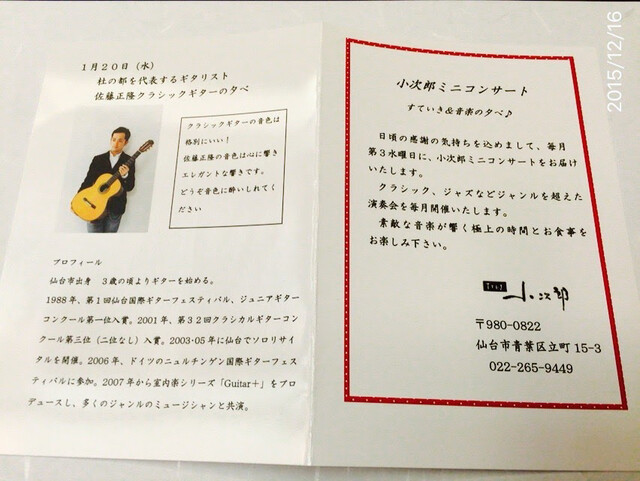 1月20日（水）
杜の都を代表するギタリスト
佐藤正隆クラシックギターの夕べ
クラシックギターの音色は
格別にいい！
佐藤正隆の音色は心に響き
エレガントな響きです。
どうぞ音色に酔いしれてく
ださい
プロフィール
仙台市出身　3歳の頃よりギターを始める。
1988年、第1回仙台国際ギターフェスティバル、ジュニアギター
コンクール第一位入賞。2001年、第32回クラシカルギターコン
クール第三位（二位なし）入賞。2003・05年に仙台でソロリサイ
タルを開催。2006年、ドイツのニュルチンゲン国際ギターフェス
ティバルに参加。2007年から室内楽シリーズ「Guitar＋」をプロ
デュースし、多くのジャンルのミュージシャンと共演。
小次郎ミニコンサート
すていき&音楽の夕べ♪
日頃の感謝の気持ちを込めまして、毎月
第3水曜日に、小次郎ミニコンサートをお届け
いたします。
クラシック、ジャズなどジャンルを超えた
演奏会を毎月開催いたします。
素敵な音楽が響く極上の時間とお食事を
お楽しみ下さい。
小次郎
〒980-0822
仙台市青葉区立町15-3
022-265-9449
2015/12/16